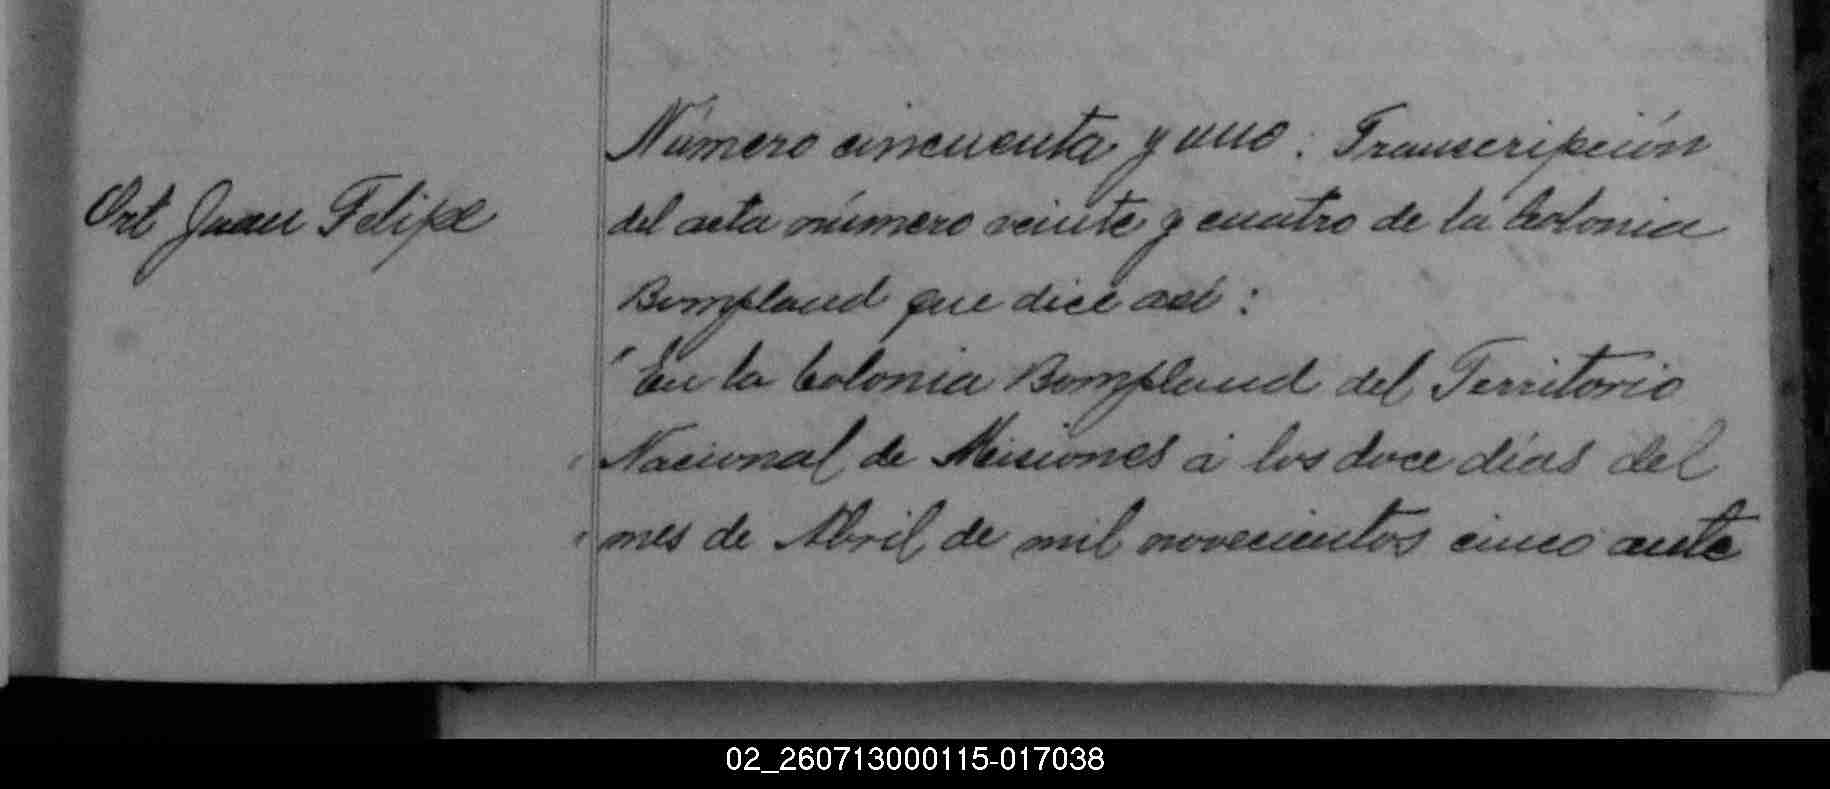 Ort Juan Felipe
Número cincuenta y uno: Transcripción
del acta número veinte y cuatro de la Colonia
Bompland que dice así:
"En la Colonia Bompland del Territorio
"Nacional de Misiones á los doce días del
"mes de Abril de mil novecientos cinco ante
02_260713000115-017038